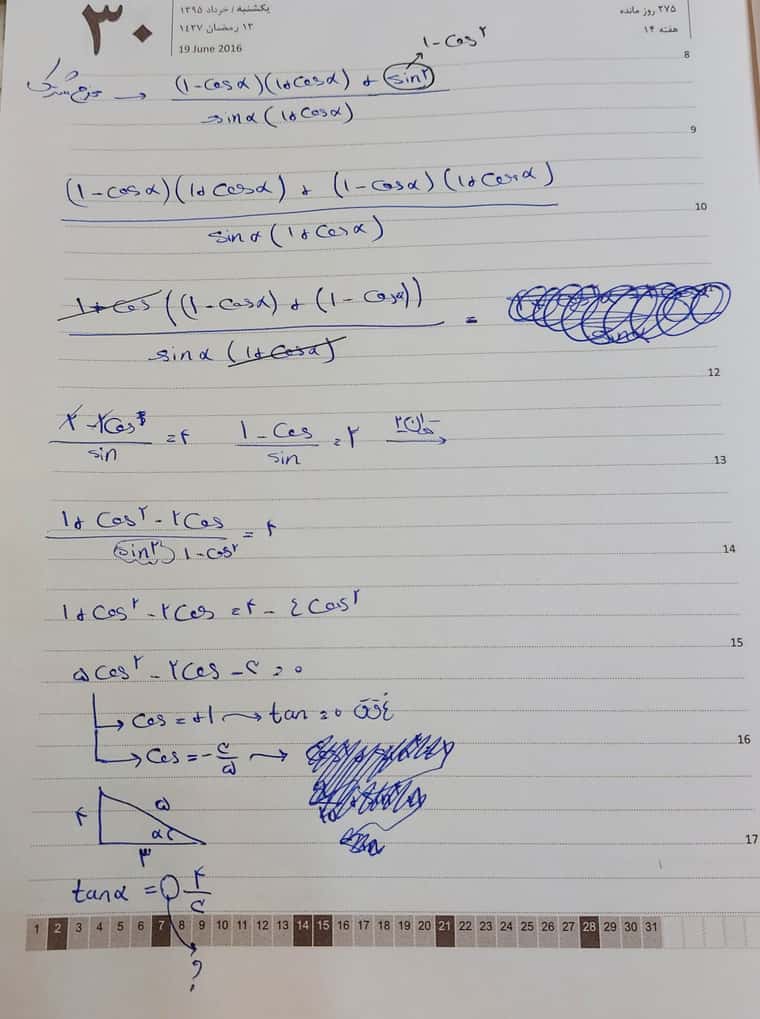 ۳۰
یکشنبه / خرداد ۱۳۹۵
۱۳ رمضان ۱۴۳۷
19 June 2016
۲۷۵ روز مانده
هفته ۱۴
1-Cos۲
مخرج مشترک → (1-Cosα)(1+Cosα) + sin۲ / sinα(1+Cosα)
8
9
(1-Cosα)(1+Cosα) + (1-Cosα)(1+Cosα) / sinα(1+Cosα)
10
1+Cos((1-Cosα) + (1-Cosα)) / sinα(1+Cosα) =
12
۲-۲Cos / sin = ۴ 1-Cos / sin = ۲ توان۲ →
13
1+Cos۲-۲Cos / sin۲ 1-Cos۲ = ۴
14
1+Cos۲-۲Cos = ۴-۴Cos۲
15
۵Cos۲-۲Cos-۳=۰
→ Cos=+1 → tan=۰ غ ق ق
16
→ Cos=-۳/۵ →
۴ ۵ α ۳
17
tanα = ۴/۳
1 2 3 4 5 6 7 8 9 10 11 12 13 14 15 16 17 18 19 20 21 22 23 24 25 26 27 28 29 30 31
?